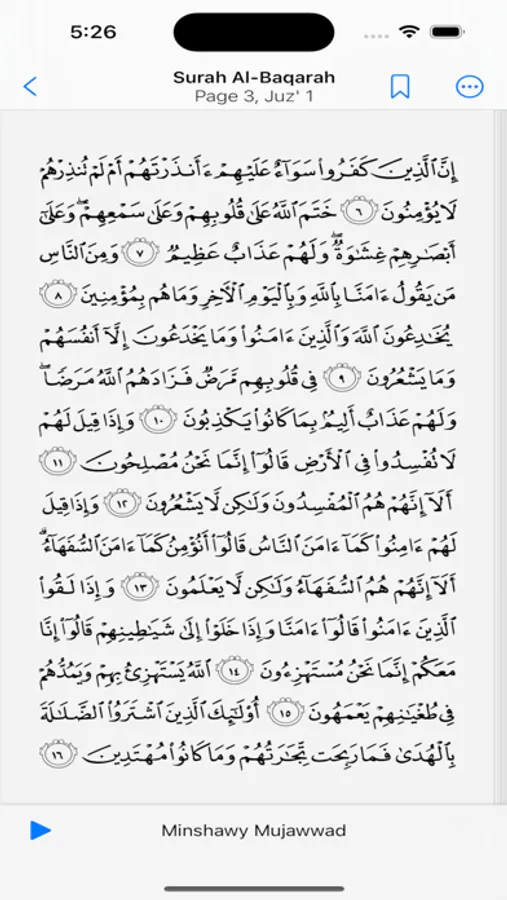 5:26
Surah Al-Baqarah
Page 3, Juz' 1
إِنَّ ٱلَّذِينَ كَفَرُوا۟ سَوَآءٌ عَلَيْهِمْ ءَأَنذَرْتَهُمْ أَمْ لَمْ تُنذِرْهُمْ
لَا يُؤْمِنُونَ ٦ خَتَمَ ٱللَّهُ عَلَىٰ قُلُوبِهِمْ وَعَلَىٰ سَمْعِهِمْ ۖ وَعَلَىٰٓ
أَبْصَـٰرِهِمْ غِشَـٰوَةٌ ۖ وَلَهُمْ عَذَابٌ عَظِيمٌ ٧ وَمِنَ ٱلنَّاسِ
مَن يَقُولُ ءَامَنَّا بِٱللَّهِ وَبِٱلْيَوْمِ ٱلْـَٔاخِرِ وَمَا هُم بِمُؤْمِنِينَ ٨
يُخَـٰدِعُونَ ٱللَّهَ وَٱلَّذِينَ ءَامَنُوا۟ وَمَا يَخْدَعُونَ إِلَّآ أَنفُسَهُمْ
وَمَا يَشْعُرُونَ ٩ فِى قُلُوبِهِم مَّرَضٌ فَزَادَهُمُ ٱللَّهُ مَرَضًا ۖ
وَلَهُمْ عَذَابٌ أَلِيمٌۢ بِمَا كَانُوا۟ يَكْذِبُونَ ١٠ وَإِذَا قِيلَ لَهُمْ
لَا تُفْسِدُوا۟ فِى ٱلْأَرْضِ قَالُوٓا۟ إِنَّمَا نَحْنُ مُصْلِحُونَ ١١
أَلَآ إِنَّهُمْ هُمُ ٱلْمُفْسِدُونَ وَلَـٰكِن لَّا يَشْعُرُونَ ١٢ وَإِذَا قِيلَ
لَهُمْ ءَامِنُوا۟ كَمَآ ءَامَنَ ٱلنَّاسُ قَالُوٓا۟ أَنُؤْمِنُ كَمَآ ءَامَنَ ٱلسُّفَهَآءُ ۗ
أَلَآ إِنَّهُمْ هُمُ ٱلسُّفَهَآءُ وَلَـٰكِن لَّا يَعْلَمُونَ ١٣ وَإِذَا لَقُوا۟
ٱلَّذِينَ ءَامَنُوا۟ قَالُوٓا۟ ءَامَنَّا وَإِذَا خَلَوْا۟ إِلَىٰ شَيَـٰطِينِهِمْ قَالُوٓا۟ إِنَّا
مَعَكُمْ إِنَّمَا نَحْنُ مُسْتَهْزِءُونَ ١٤ ٱللَّهُ يَسْتَهْزِئُ بِهِمْ وَيَمُدُّهُمْ
فِى طُغْيَـٰنِهِمْ يَعْمَهُونَ ١٥ أُو۟لَـٰٓئِكَ ٱلَّذِينَ ٱشْتَرَوُا۟ ٱلضَّلَـٰلَةَ
بِٱلْهُدَىٰ فَمَا رَبِحَت تِّجَـٰرَتُهُمْ وَمَا كَانُوا۟ مُهْتَدِينَ ١٦
Minshawy Mujawwad